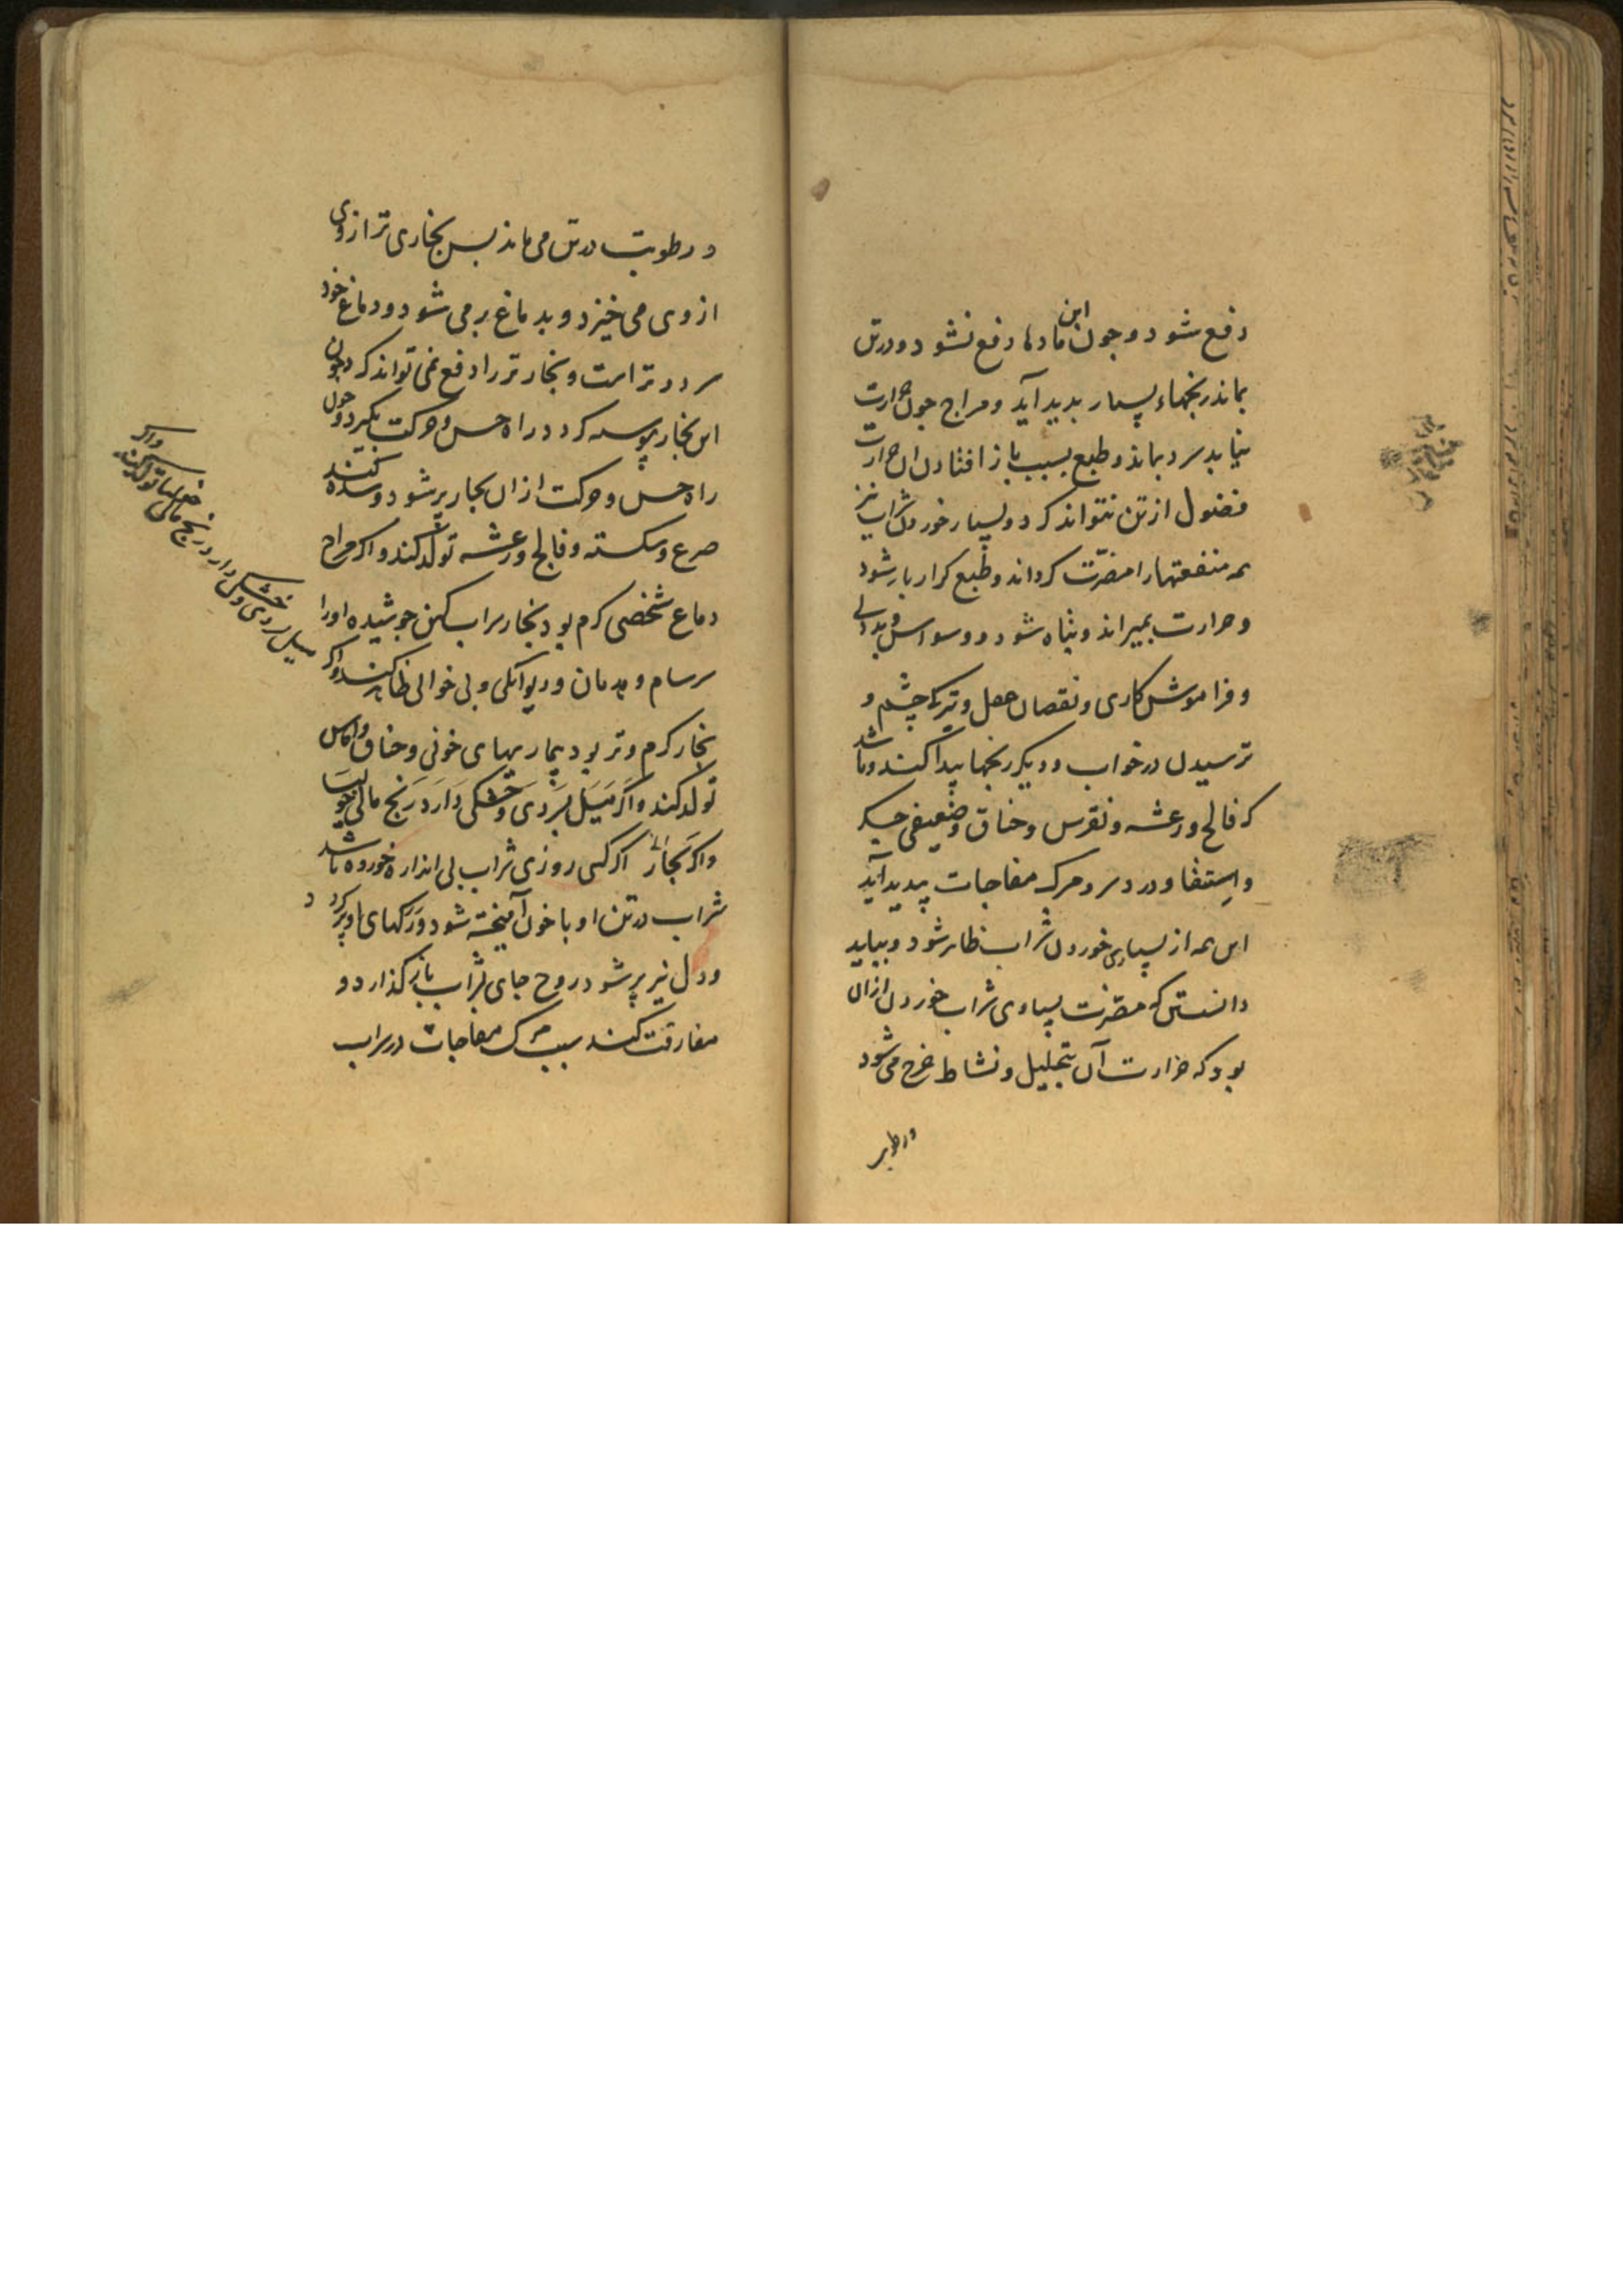 دفع شود و چون این مادها دفع نشود و در تن
بماند رنجهاء بسیار بدید آید و مزاج چون حرارت
نیابد سرد بماند و طبع بسبب باز افتادن ان حرارت
فضول از تن نتواند کرد و بسیار خوردن شراب نیز
همه منفعتها را مضرّت کرداند و طبع کران بار شود
و حرارت بمیراند و تباه شود و وسواس و بددلی
و فراموش کاری و نقصان عقل و تیرکی چشم و
ترسیدن در خواب و دیکر رنجها پیدا کند و باشد
که فالج و رعشه و نقرس و خناق و ضعیفی جکر
و استسقا و درد سر و مرک مفاجات پدید آید
این همه از بسیاری خوردن شراب ظاهر شود و بباید
دانستن که مضرت بسیاری شراب خوردن ازان
بود که حرارت آن بتحلیل و نشاط خرج می شود
و رطوبت
و رطوبت در تن می ماند بس بخاری تر از وی
از وی می خیزد و بدماغ بر می شود و دماغ خود
سرد و تر است و بخار تر را دفع نمی تواند کرد و چون
این بخار پیوسته کردد راه حس و حرکت بکیرد و چون
راه حس و حرکت ازان بخار پر شود و سده کند
صرع و سکته و فالج و رعشه تولد کند و اکر مزاج
دماغ شخصی کرم بود بخار شراب کهن جوشیده او را
سرسام و هذیان و دیوانکی و بی خوابی ظاهر کند و اکر
بخار کرم و تر بود بیماریهای خونی و خناق و اماس
تولد کند و اکر میل بسردی و خشکی دارد رنج مالیخولیا
و اکر بخار اکر کسی روزی شراب بی اندازه خورده باشد
شراب در تن او با خون آمیخته شود و رکهای او پر کردد
و دل نیز پر شود روح جای بشراب باز کذارد و
مفارقت کند سبب مرک مفاجات در شراب
و اکر
میل بسردی و خشکی دارد رنج مالیخولیا تولد کند